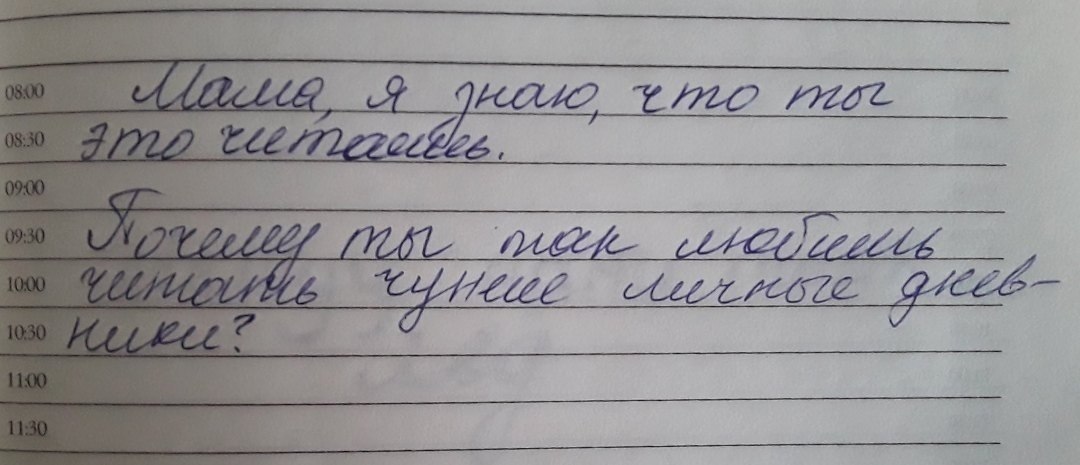 08:00 Мама, я знаю, что ты
08:30 это читаешь.
09:00
09:30 Почему ты так любишь
10:00 читать чужие личные днев-
10:30 ники?
11:00
11:30